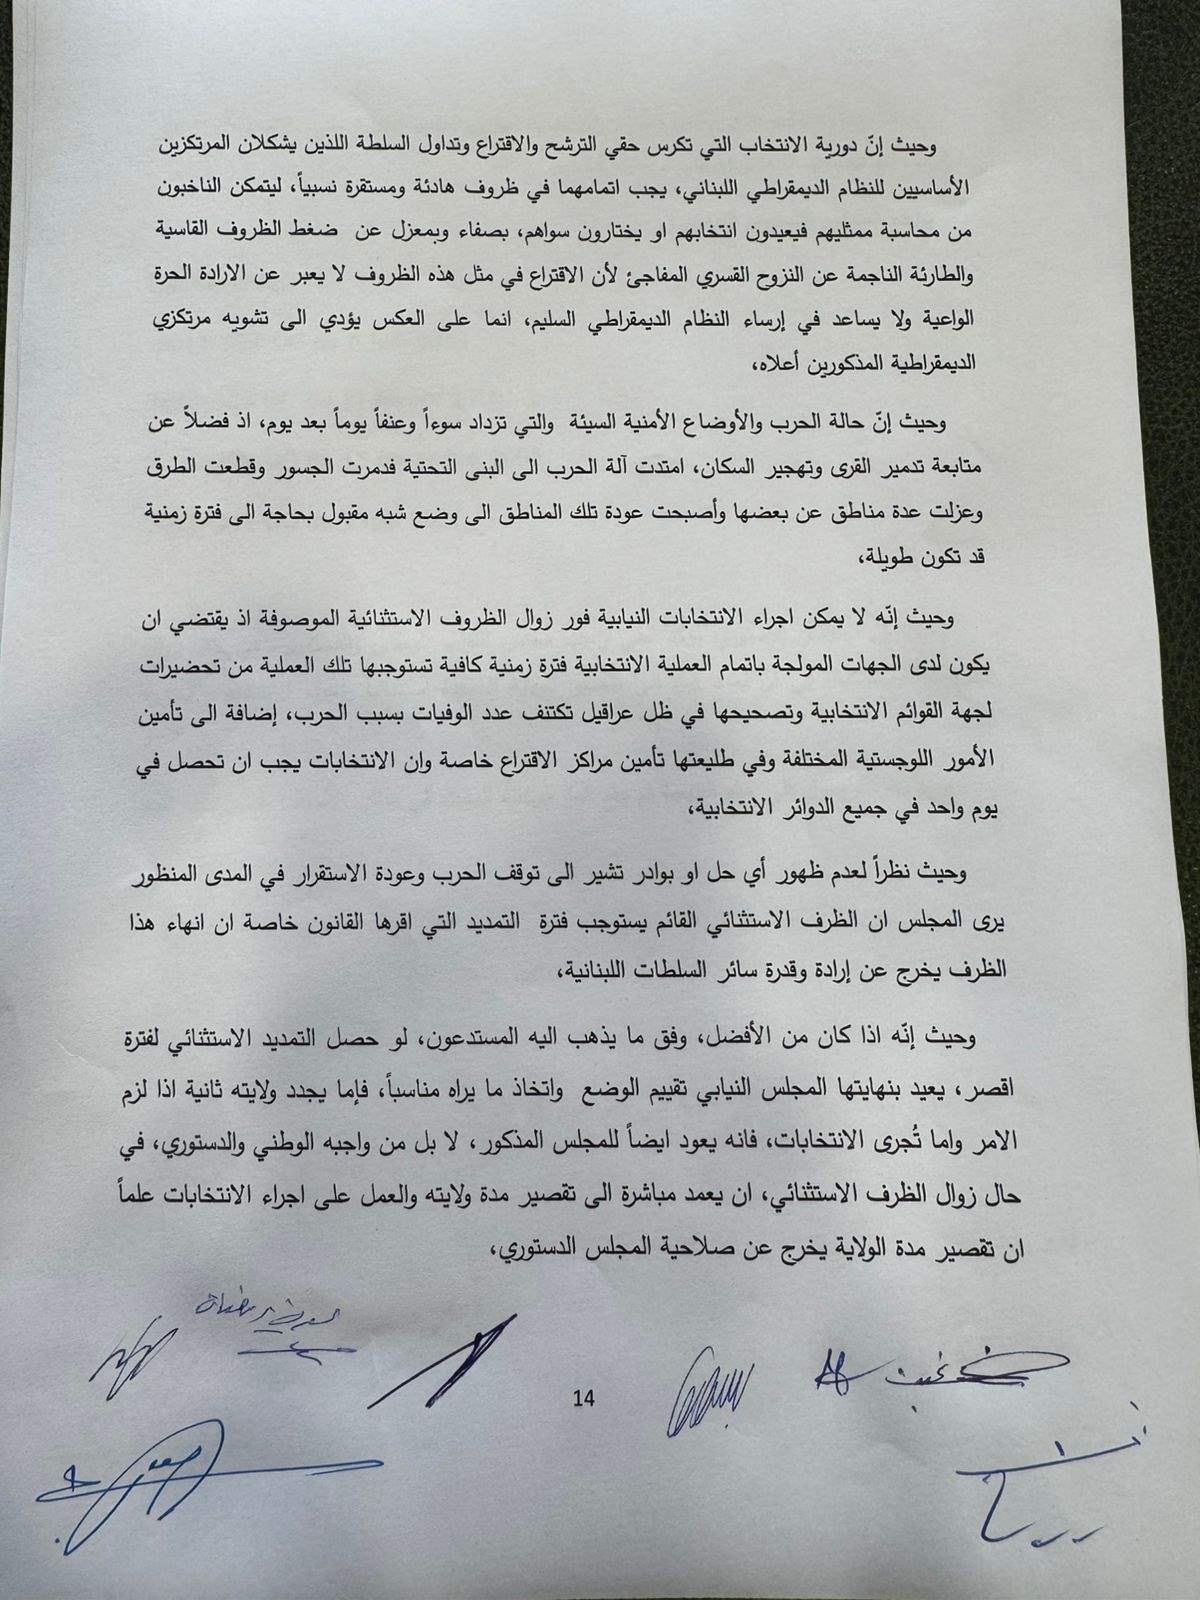 وحيث إنّ دورية الانتخاب التي تكرس حقي الترشح والاقتراع وتداول السلطة اللذين يشكلان المرتكزين
الأساسيين للنظام الديمقراطي اللبناني، يجب اتمامهما في ظروف هادئة ومستقرة نسبياً، ليتمكن الناخبون
من محاسبة ممثليهم فيعيدون انتخابهم او يختارون سواهم، بصفاء وبمعزل عن ضغط الظروف القاسية
والطارئة الناجمة عن النزوح القسري المفاجئ لأن الاقتراع في مثل هذه الظروف لا يعبر عن الارادة الحرة
الواعية ولا يساعد في إرساء النظام الديمقراطي السليم، انما على العكس يؤدي الى تشويه مرتكزي
الديمقراطية المذكورين أعلاه،
وحيث إنّ حالة الحرب والأوضاع الأمنية السيئة والتي تزداد سوءاً وعنفاً يوماً بعد يوم، اذ فضلاً عن
متابعة تدمير القرى وتهجير السكان، امتدت آلة الحرب الى البنى التحتية فدمرت الجسور وقطعت الطرق
وعزلت عدة مناطق عن بعضها وأصبحت عودة تلك المناطق الى وضع شبه مقبول بحاجة الى فترة زمنية
قد تكون طويلة،
وحيث إنّه لا يمكن اجراء الانتخابات النيابية فور زوال الظروف الاستثنائية الموصوفة اذ يقتضي ان
يكون لدى الجهات المولجة باتمام العملية الانتخابية فترة زمنية كافية تستوجبها تلك العملية من تحضيرات
لجهة القوائم الانتخابية وتصحيحها في ظل عراقيل تكتنف عدد الوفيات بسبب الحرب، إضافة الى تأمين
الأمور اللوجستية المختلفة وفي طليعتها تأمين مراكز الاقتراع خاصة وان الانتخابات يجب ان تحصل في
يوم واحد في جميع الدوائر الانتخابية،
وحيث نظراً لعدم ظهور أي حل او بوادر تشير الى توقف الحرب وعودة الاستقرار في المدى المنظور
يرى المجلس ان الظرف الاستثنائي القائم يستوجب فترة التمديد التي اقرها القانون خاصة ان انهاء هذا
الظرف يخرج عن إرادة وقدرة سائر السلطات اللبنانية،
وحيث إنّه اذا كان من الأفضل، وفق ما يذهب اليه المستدعون، لو حصل التمديد الاستثنائي لفترة
اقصر، يعيد بنهايتها المجلس النيابي تقييم الوضع واتخاذ ما يراه مناسباً، فإما يجدد ولايته ثانية اذا لزم
الامر واما تُجرى الانتخابات، فانه يعود ايضاً للمجلس المذكور، لا بل من واجبه الوطني والدستوري، في
حال زوال الظرف الاستثنائي، ان يعمد مباشرة الى تقصير مدة ولايته والعمل على اجراء الانتخابات علماً
ان تقصير مدة الولاية يخرج عن صلاحية المجلس الدستوري،
14